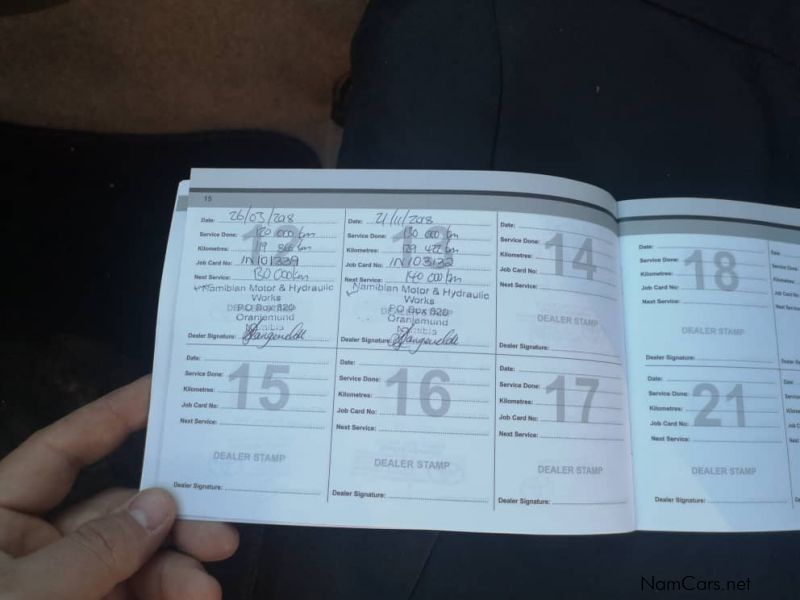 15
Date: 26/03/2018
Service Done: 120 000 km
Kilometres: 119 866 km
Job Card No: IN101339
Next Service: 130 000km
12
Namibian Motor & Hydraulic
Works
P O Box 820
Oranjemund
Namibia
DEALER STAMP
Dealer Signature:
Date: 21/11/2018
Service Done: 130 000 km
Kilometres: 129 422 km
Job Card No: IN103132
Next Service: 140 000km
13
Namibian Motor & Hydraulic
Works
P O Box 820
Oranjemund
Namibia
DEALER STAMP
Dealer Signature:
Date:
Service Done:
Kilometres:
Job Card No:
Next Service:
14
DEALER STAMP
Dealer Signature:
Date:
Service Done:
Kilometres:
Job Card No:
Next Service:
15
DEALER STAMP
Dealer Signature:
Date:
Service Done:
Kilometres:
Job Card No:
Next Service:
16
DEALER STAMP
Dealer Signature:
Date:
Service Done:
Kilometres:
Job Card No:
Next Service:
17
DEALER STAMP
Dealer Signature:
Date:
Service Done:
Kilometres:
Job Card No:
Next Service:
18
DEALER STAMP
Dealer Signature:
Date:
Service Done:
Kilometres:
Job Card No:
Next Service:
21
DEALER STAMP
Dealer Signature:
NamCars.net